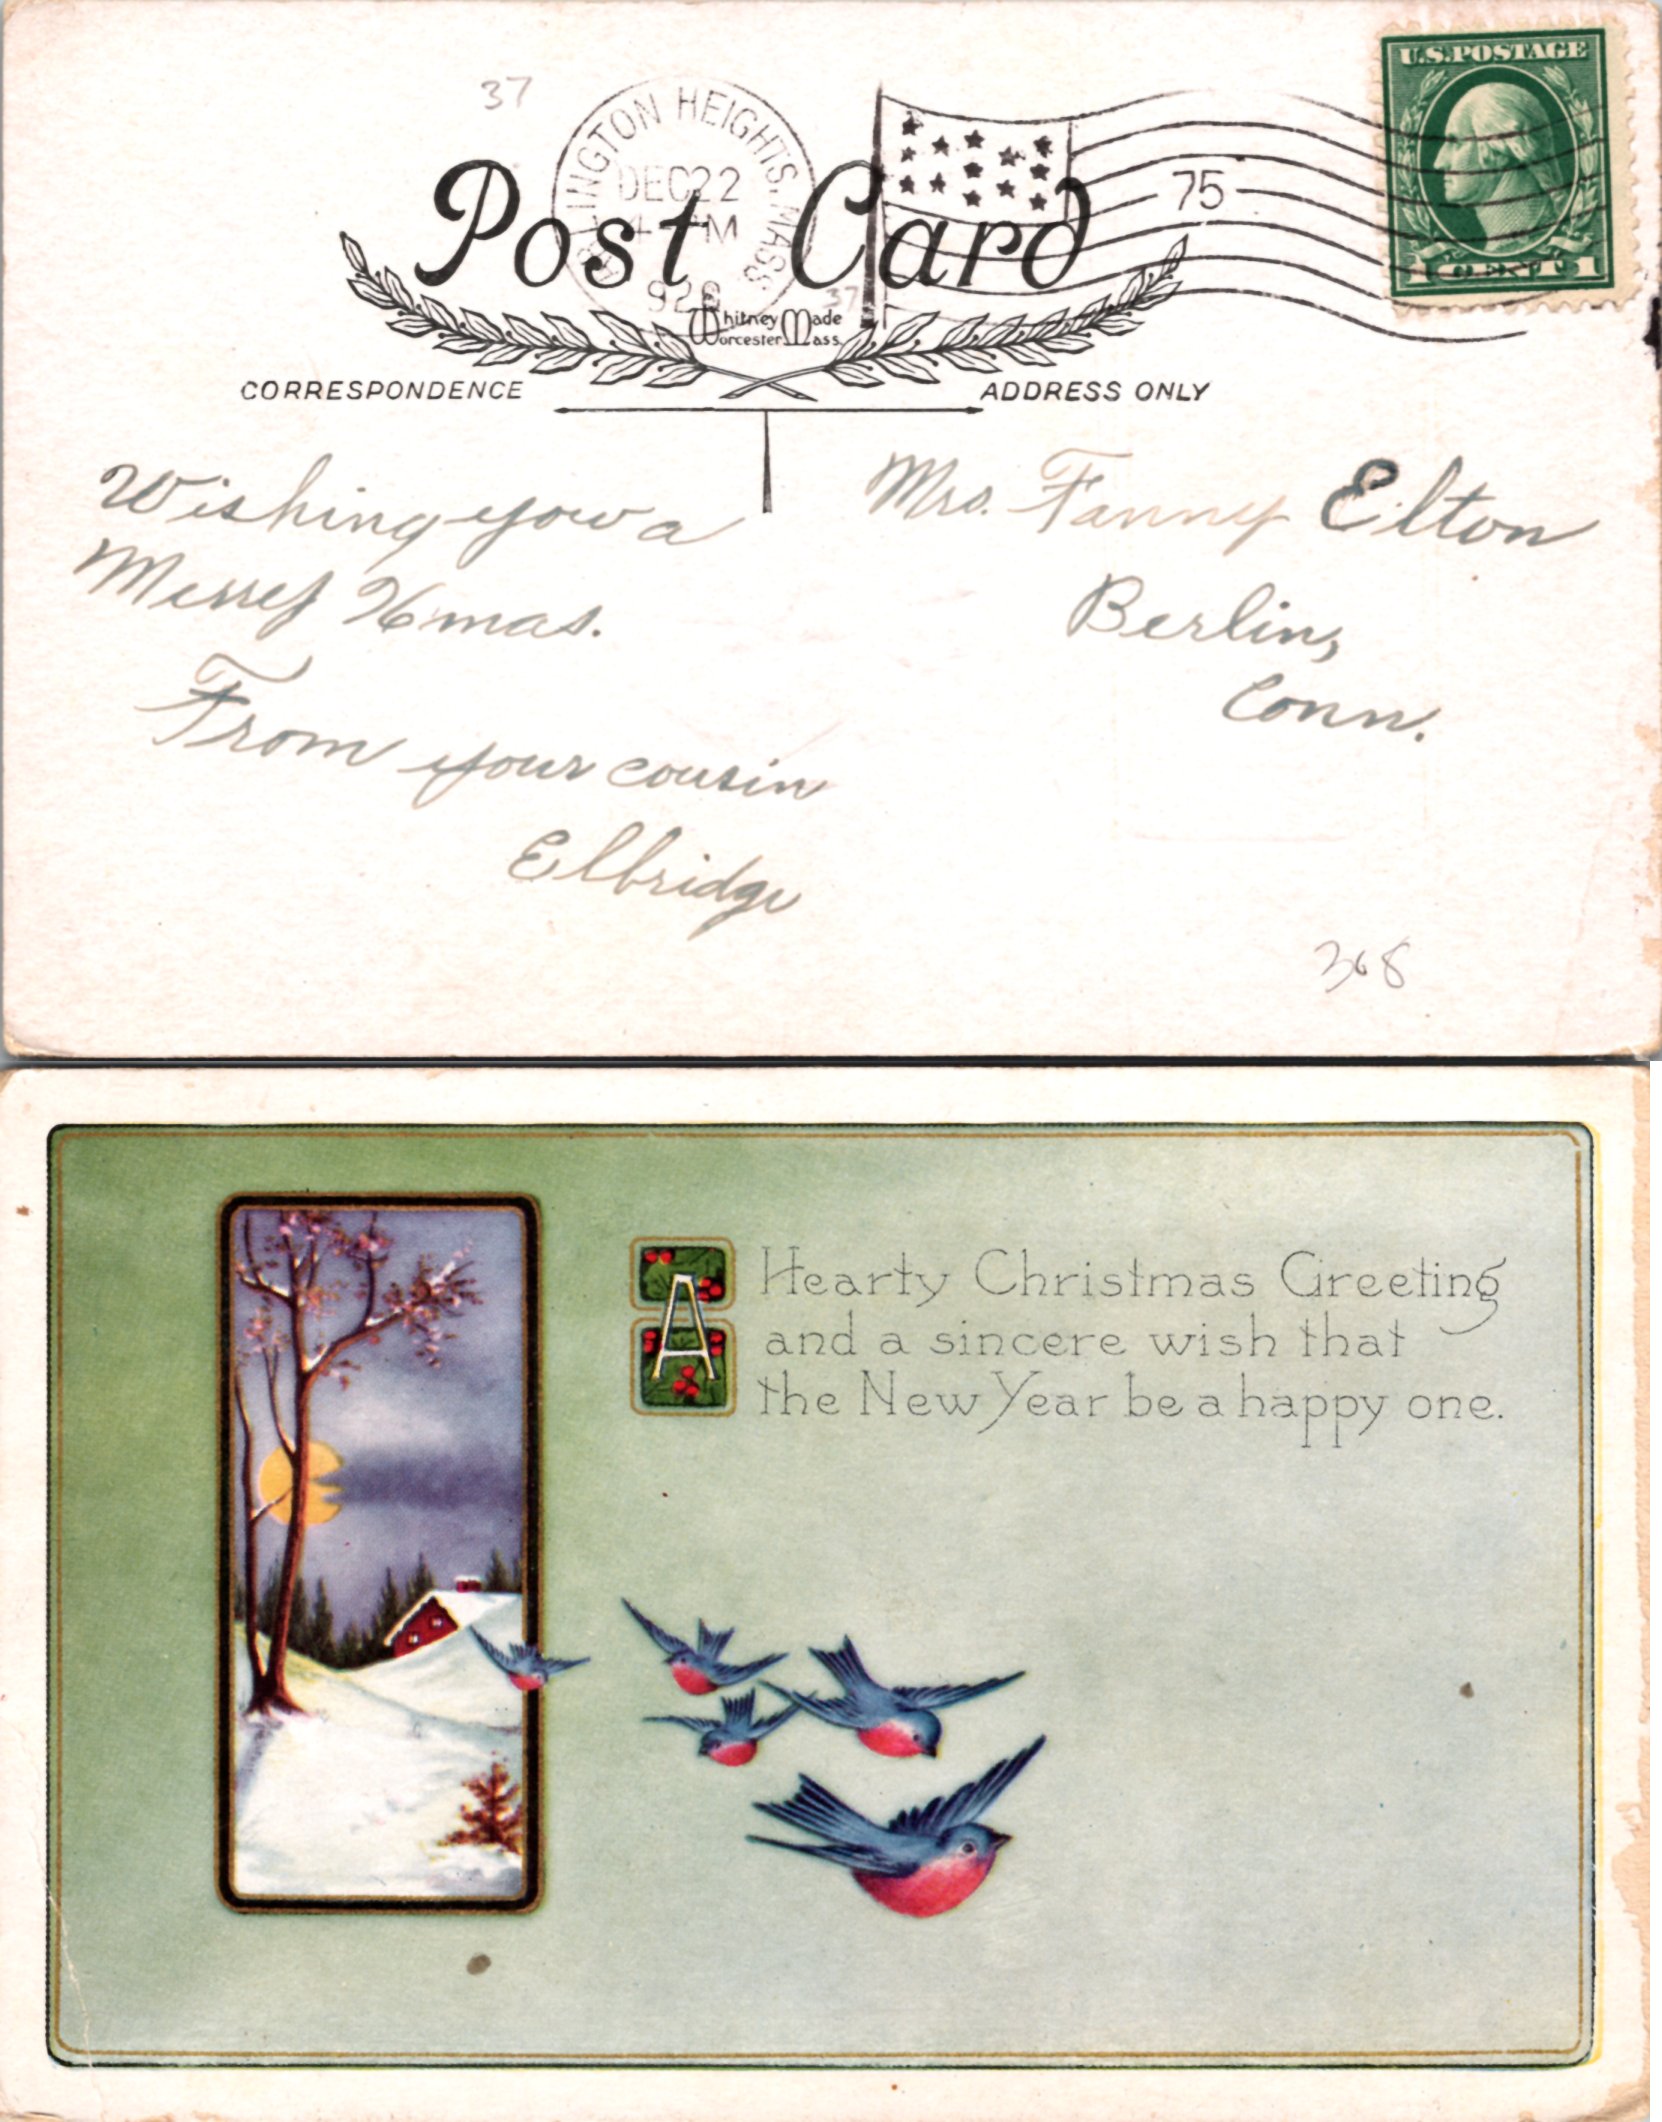 37
U.S. POSTAGE
1 CENT 1
INGTON HEIGHTS, MASS
DEC 22
4 PM
75
Post Card
37
Whitney Made
Worcester Mass.
CORRESPONDENCE
ADDRESS ONLY
Wishing you a
Merry Xmas.
From your cousin
Elbridge
Mrs. Fanny Elton
Berlin,
Conn.
368
A Hearty Christmas Greeting
and a sincere wish that
the New Year be a happy one.